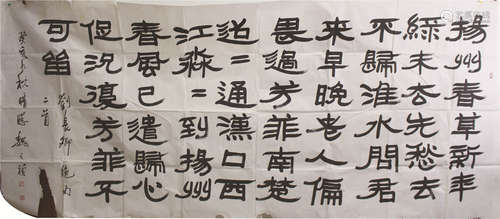 揚州春草新年
綠未去先愁去
不歸淮水問君
來早晚老人偏
畏過芳菲南楚
迢=通漢口西
江淼=到揚州
春風已遣歸心
促況復芳菲不
可留
劉長卿絕句
二首